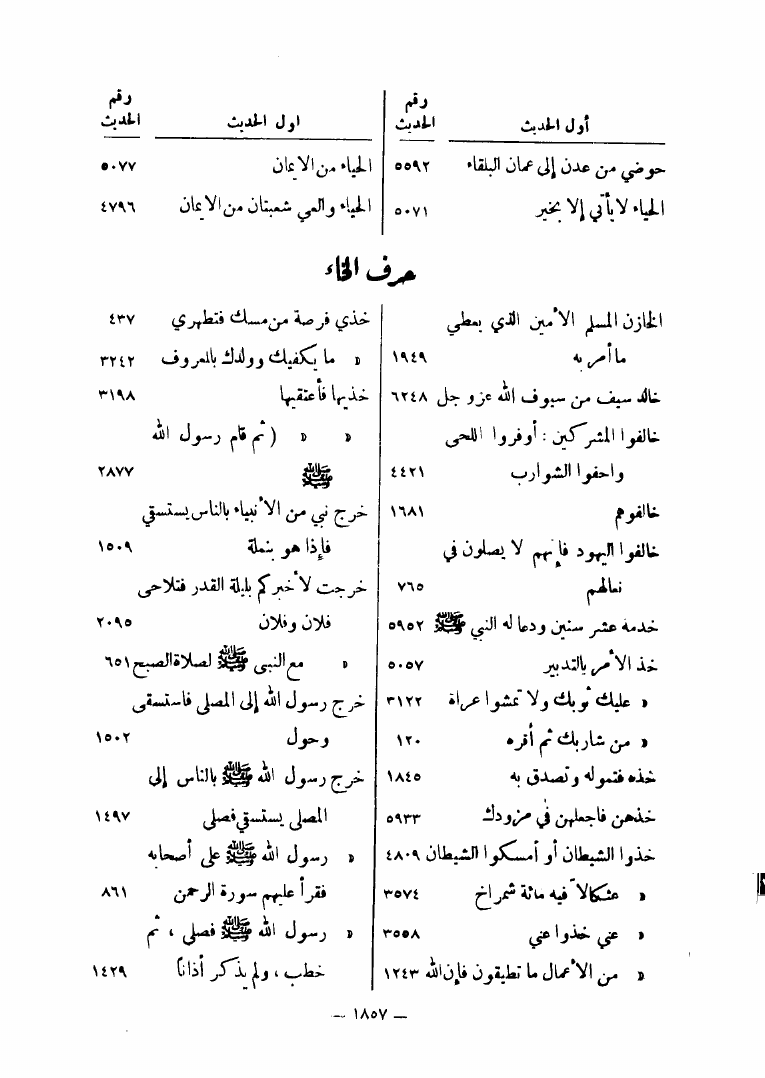 أول الحديث
رقم
الحديث
حوضي من عدن إلى عمان البلقاء ٥٥٩٢
الحياء لا يأتي إلا بخير ٥٠٧١
اول الحديث
رقم
الحديث
الحياء من الايمان ٥٠٧٧
الحياء والعي شعبتان من الايمان ٤٧٩٦
حرف الخاء
الخازن المسلم الأمين الذي يعطي
ما أمر به ١٩٤٩
خالد سيف من سيوف الله عز و جل ٦٢٤٨
خالفوا المشركين : أوفروا اللحى
واحفوا الشوارب ٤٤٢١
خالفوهم ١٦٨١
خالفوا اليهود فإنهم لا يصلون في
نعالهم ٧٦٥
خدمه عشر سنين ودعا له النبي ﷺ ٥٩٥٢
خذ الأمر بالتدبير ٥٠٥٧
« عليك ثوبك ولا تمشوا عراة ٣١٢٢
« من شاربك ثم أقره ١٢٠
خذه فتموله وتصدق به ١٨٤٥
خذهن فاجعلهن في مزودك ٥٩٣٣
خذوا الشيطان أو أمسكوا الشيطان ٤٨٠٩
« عثكالاً فيه مائة شمراخ ٣٥٧٤
« عني خذوا عني ٣٥٥٨
« من الأعمال ما تطيقون فإن الله ١٢٤٣
خذي فرصة من مسك فتطهري ٤٣٧
« ما يكفيك وولدك بالمعروف ٣٢٤٢
خذيها فأعتقيها ٣١٩٨
« « (ثم قام رسول الله
ﷺ ٢٨٧٧
خرج نبي من الأنبياء بالناس يستسقي
فإذا هو بنملة ١٥٠٩
خرجت لأخبركم بليلة القدر فتلاحى
فلان وفلان ٢٠٩٥
« مع النبي ﷺ لصلاة الصبح ٦٥١
خرج رسول الله إلى المصلى فاستسقى
وحول ١٥٠٢
خرج رسول الله ﷺ بالناس إلى
المصلى يستسقي فصلى ١٤٩٧
« رسول الله ﷺ على أصحابه
فقرأ عليهم سورة الرحمن ٨٦١
« رسول الله ﷺ فصلى ، ثم
خطب ، ولم يذكر أذاناً ١٤٢٩
— ١٨٥٧ —